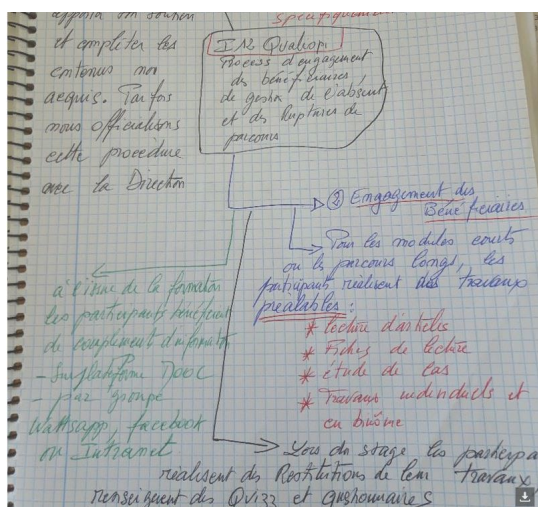 apporta son soutien
et compléter les
contenus non
acquis. Parfois
nous officialisons
cette procedure
avec la Direction
spécifiquement
I12 Qualiopi
Process d'engagement
des bénéficiaires,
de gestion de l'absent
et des Ruptures de
parcours
② Engagement des
Bénéficiaires
Pour les modules courts
ou les parcours longs, les
participants réalisent des travaux
préalables :
* lecture d'articles
* Fiches de lecture
* étude de cas
* Travaux individuels et
en binôme
à l'issue de la formation
les participants bénéficient
de complement d'information
- Sur plateforme Dooc
- par groupe
Wattsapp, facebook
ou Intranet
Lors du stage les participa
réalisent des Restitutions de leur Travaux,
renseignent des Quizz et questionnaires